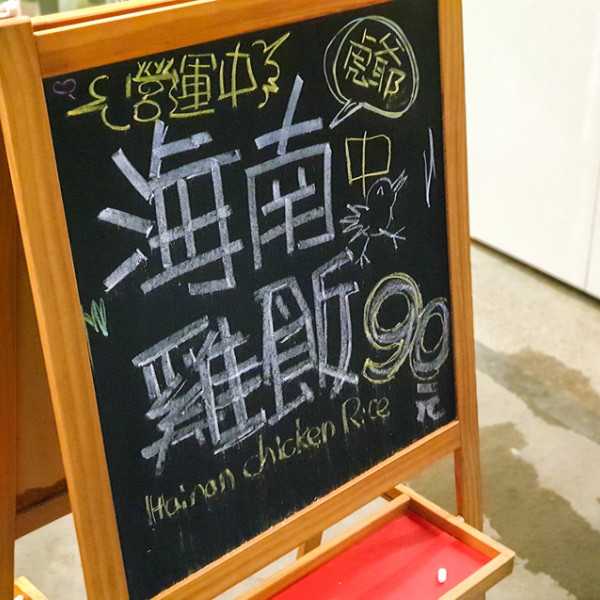 營運中
處節
中
海南
雞飯90元
Hainan chicken Rice